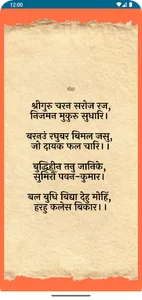 12:00
दोहा
श्रीगुरु चरन सरोज रज,
निजमन मुकुरु सुधारि।
बरनउं रघुबर बिमल जसु,
जो दायक फल चारि। ।
बुद्धिहीन तनु जानिके,
सुमिरौं पवन-कुमार।
बल बुधि बिद्या देहु मोहिं,
हरहु कलेस बिकार। ।